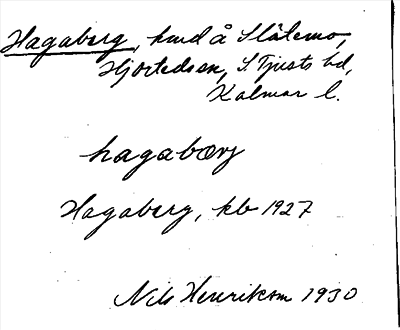 Hagaberg, hmd å Slätemo,
Hjorteds sn, S. Tjusts hd,
Kalmar l.
hagabærj
Hagaberg, kb 1927
Nils Henrikson 1930